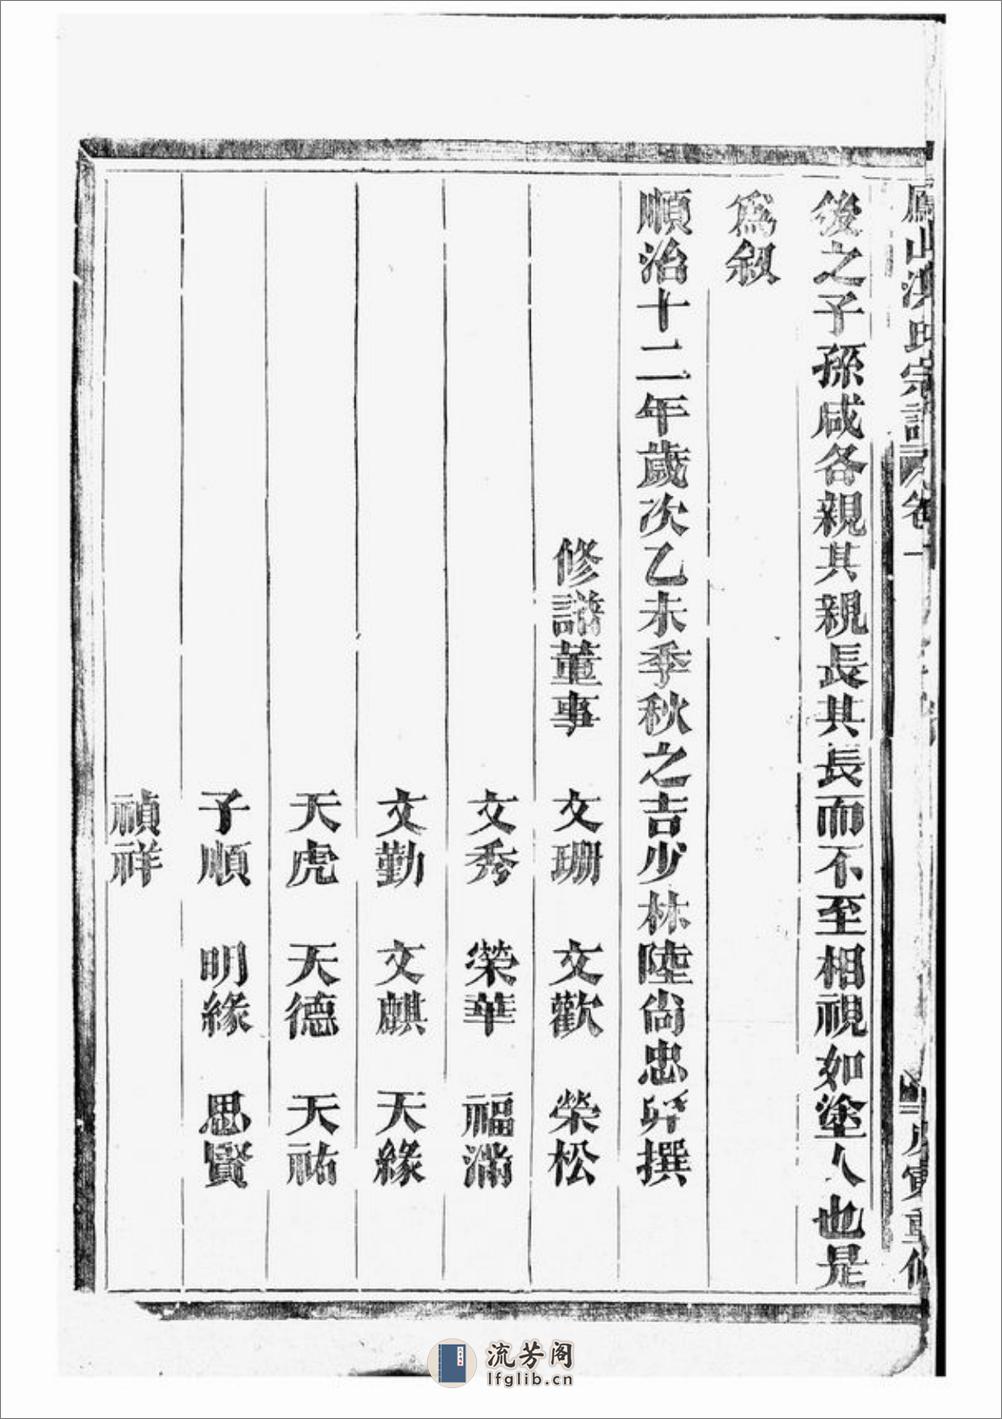 鳳山洪氏宗譜 卷一
寅重修
後之子孫咸各親其親長其長而不至相視如塗人也是
為叙
順治十二年歲次乙未季秋之吉少林陸尙忠拜撰
修譜董事 文珊 文歡 榮松
文秀 榮華 福滿
文勤 文麒 天緣
天虎 天德 天祐
子順 明緣 思賢
禎祥
流芳阁
lfglib.cn